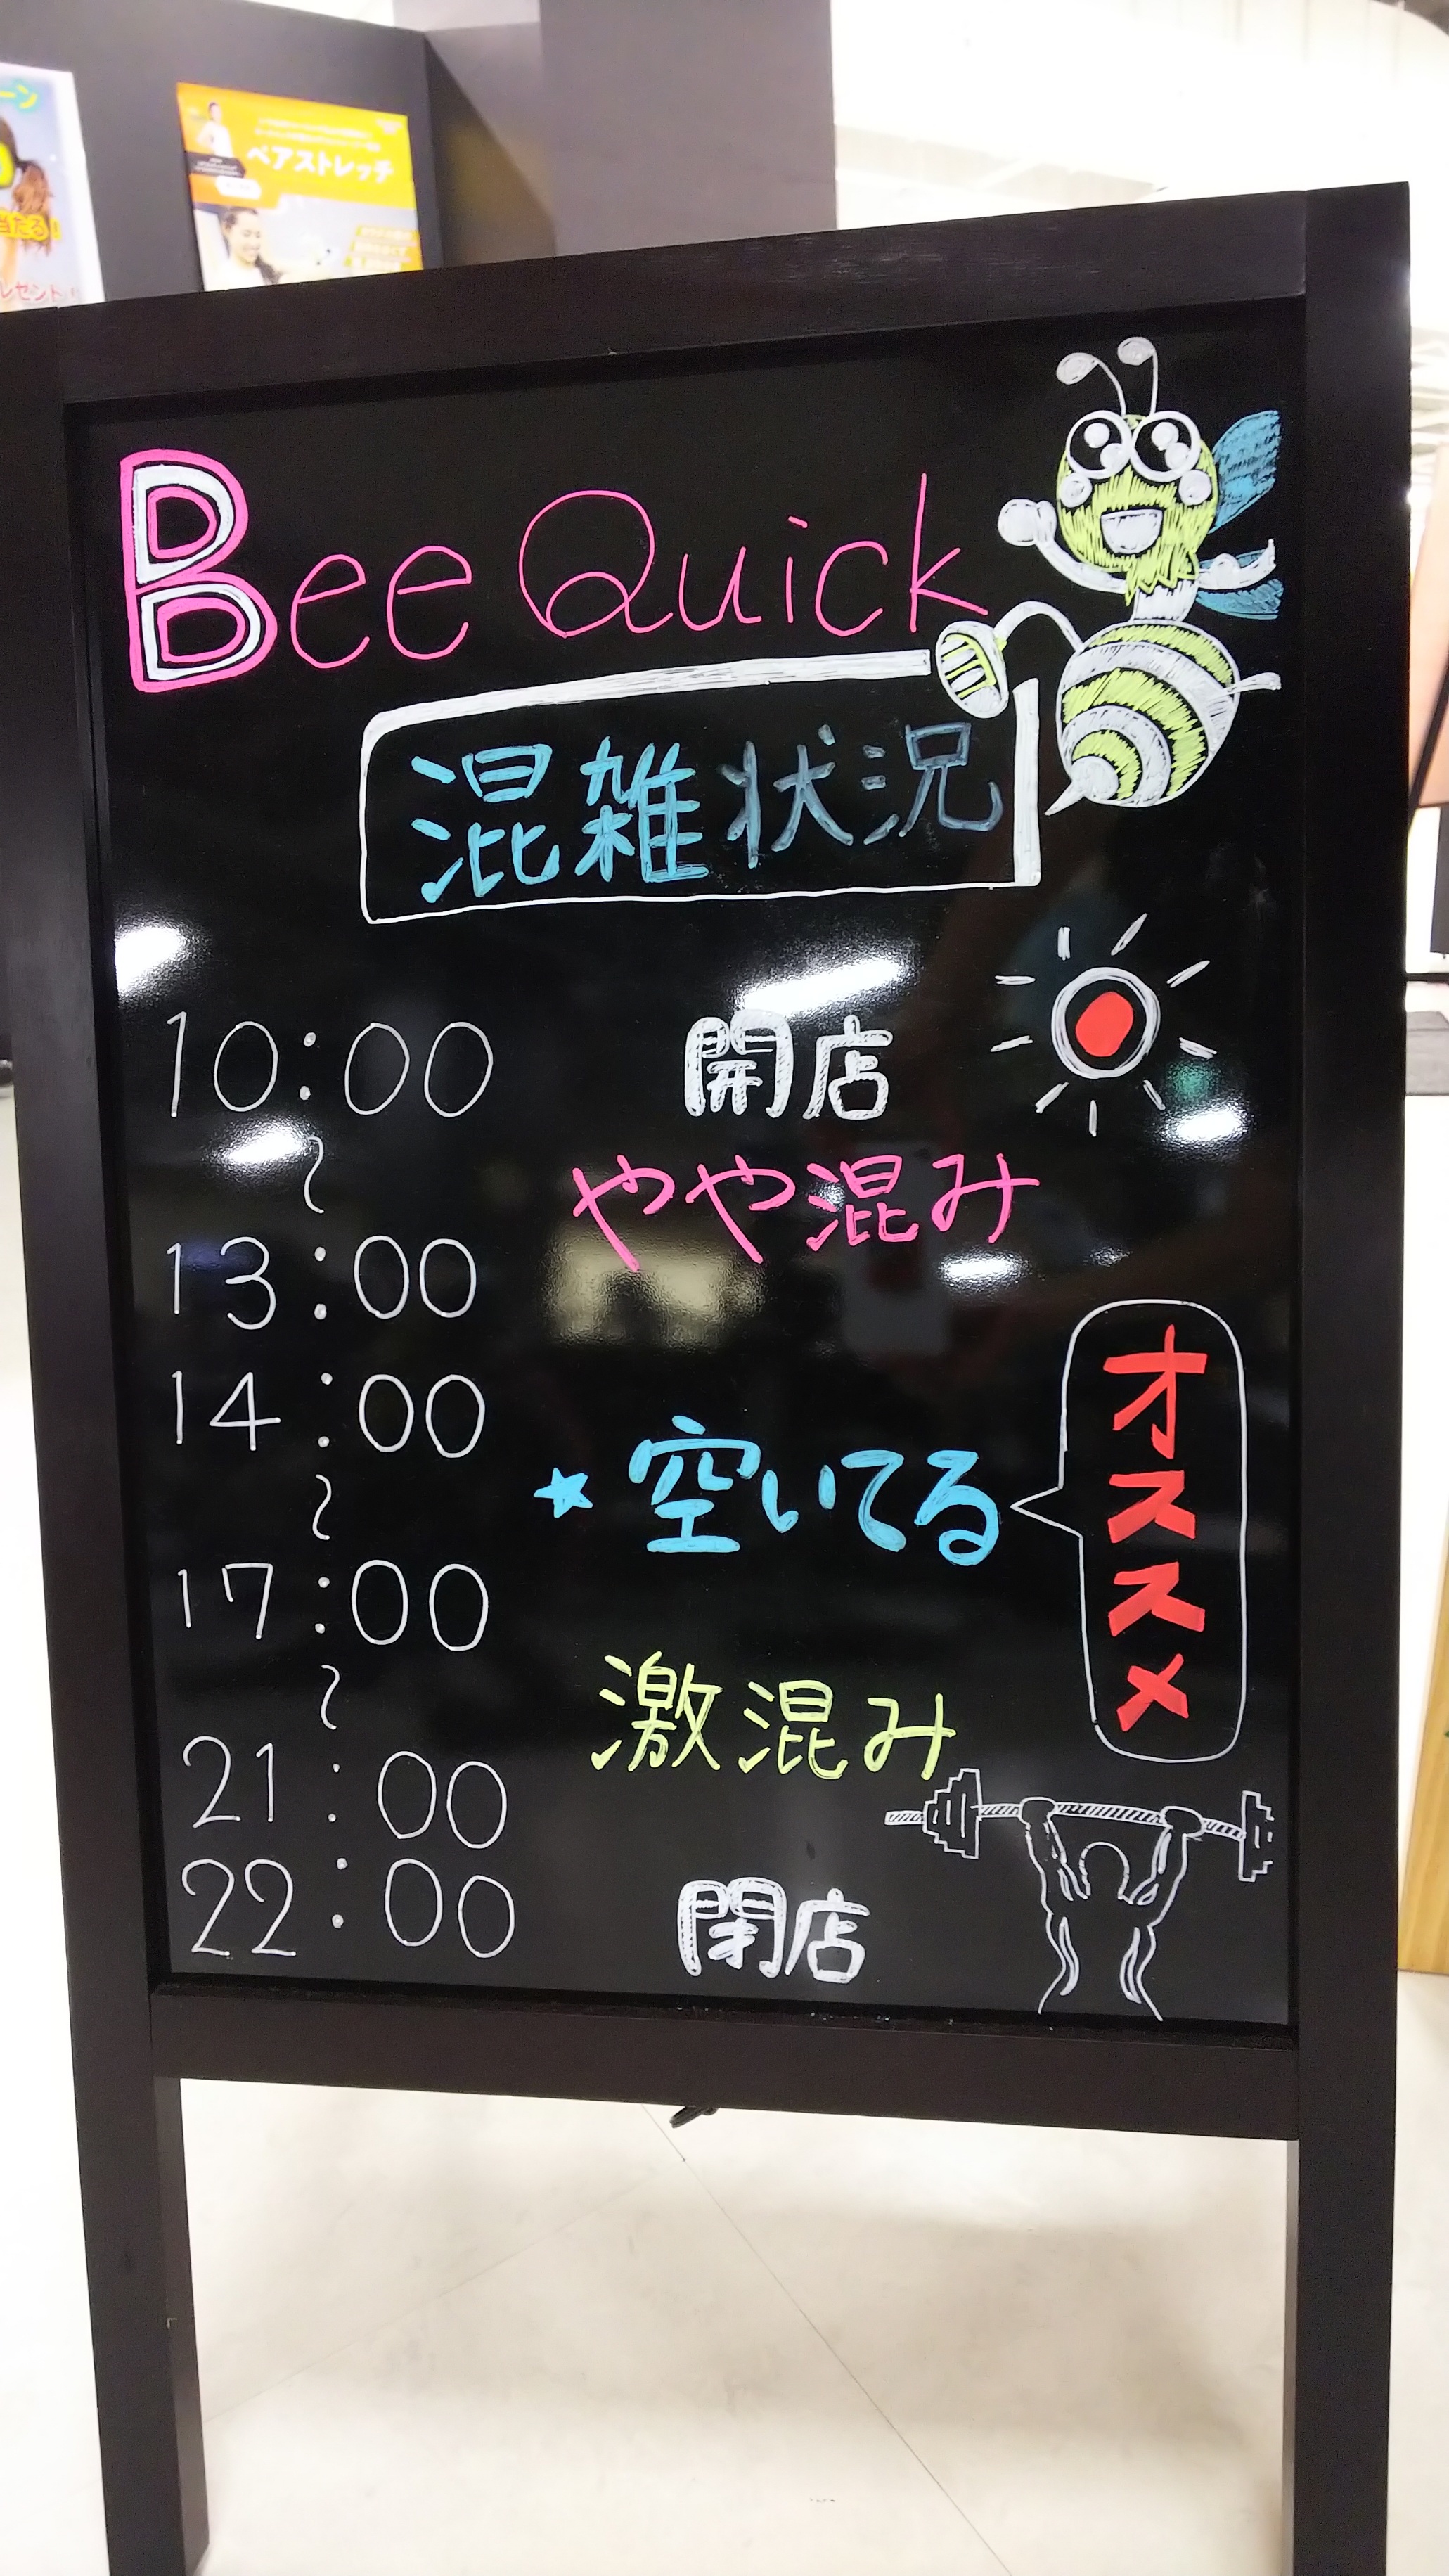 ーン
当たる!
レゼント!
ペアストレッチ
Bee Quick
混雑状況
10:00 開店
〜 やや混み
13:00
14:00
〜 ★空いてる オススメ
17:00
〜 激混み
21:00
22:00 閉店